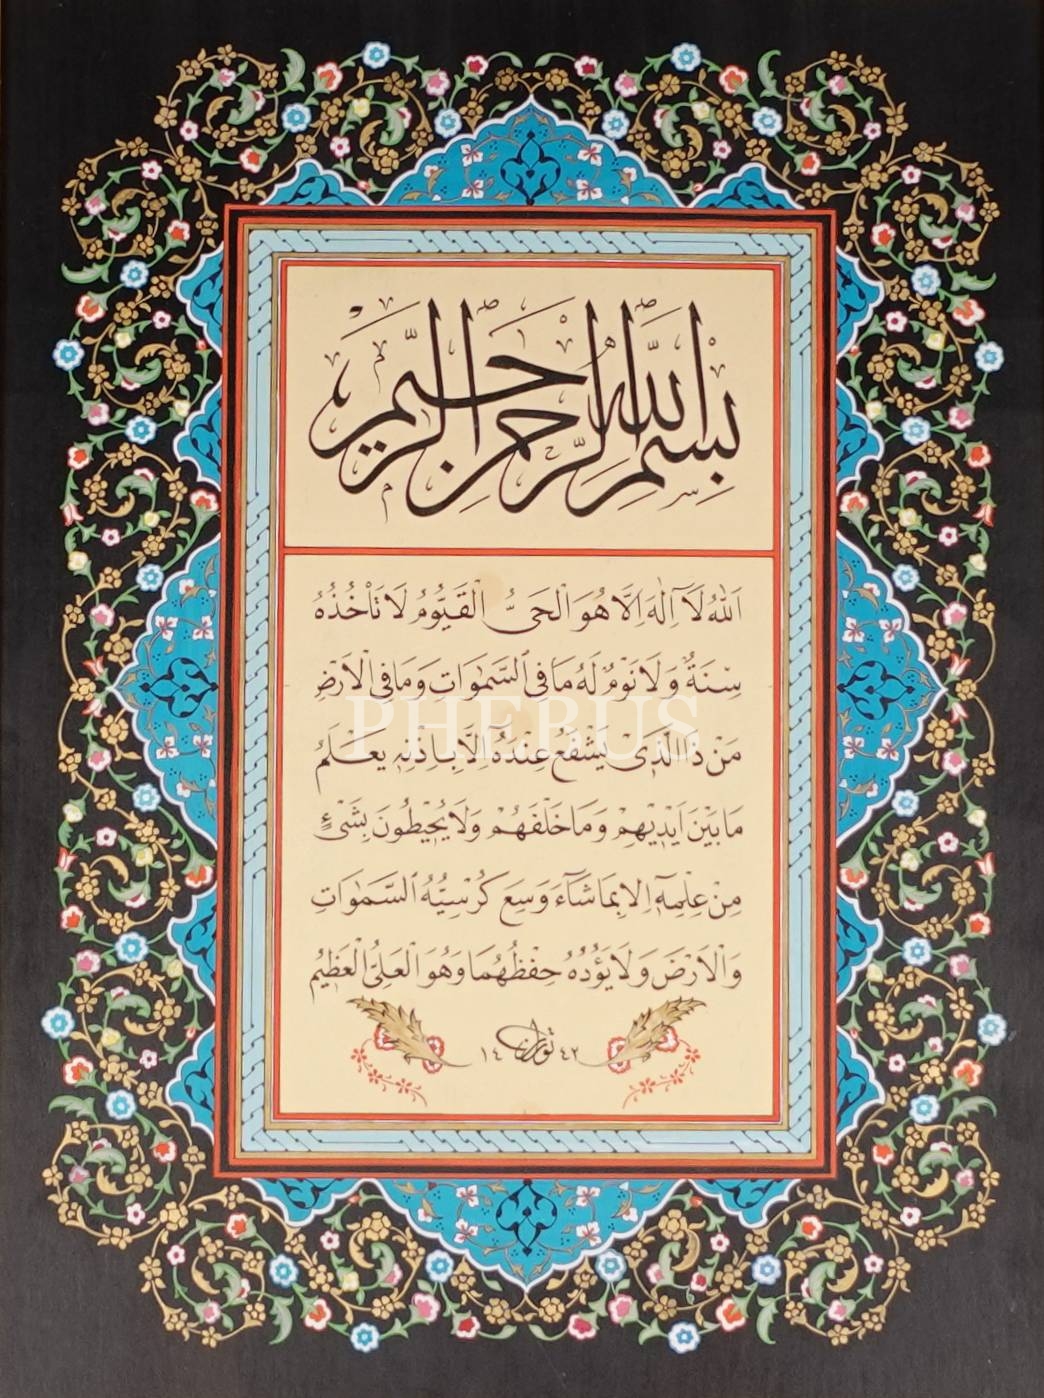 بِسْمِ اللّٰهِ الرَّحْمٰنِ الرَّحِيمِ
اَللّٰهُ لَٓا اِلٰهَ اِلَّا هُوَ اَلْحَىُّ الْقَيُّومُ لَا تَأْخُذُهُ
سِنَةٌ وَلَا نَوْمٌ لَهُ مَا فِى السَّمٰوَاتِ وَمَا فِى الْاَرْضِ
PHEBUS
مَنْ ذَا الَّذٖى يَشْفَعُ عِنْدَهُٓ اِلَّا بِاِذْنِهٖ يَعْلَمُ
مَا بَيْنَ اَيْدٖيهِمْ وَمَا خَلْفَهُمْ وَلَا يُحٖيطُونَ بِشَىْءٍ
مِنْ عِلْمِهٖٓ اِلَّا بِمَا شَٓاءَ وَسِعَ كُرْسِيُّهُ السَّمٰوَاتِ
وَالْاَرْضَ وَلَا يَؤُدُهُ حِفْظُهُمَا وَهُوَ الْعَلِىُّ الْعَظٖيمُ
١٤٤٢